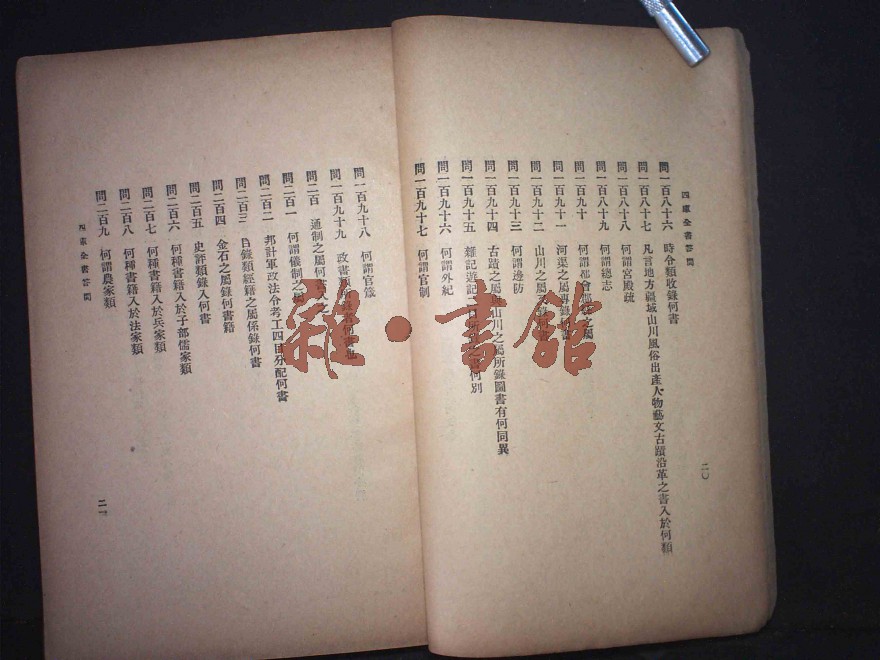 四庫全書答問
問一百八十六　時令類收錄何書
問一百八十七　凡言地方疆域山川風俗出產人物藝文古蹟沿革之書入於何類
問一百八十八　何謂宮殿疏
問一百八十九　何謂總志
問一百九十　何謂都會郡縣之屬
問一百九十一　河渠之屬專錄何書
問一百九十二　山川之屬
問一百九十三　何謂邊防
問一百九十四　古蹟之屬與山川之屬所錄圖書有何同異
問一百九十五　雜記遊記　何別
問一百九十六　何謂外紀
問一百九十七　何謂官制
二〇
問一百九十八　何謂官箴
問一百九十九　政書類
問二百　通制之屬何
問二百一　何謂儀制之屬
問二百二　邦計軍政法令考工四目分配何書
問二百三　目錄類經籍之屬係錄何書
問二百四　金石之屬錄何書籍
問二百五　史評類錄入何書
問二百六　何種書籍入於子部儒家類
問二百七　何種書籍入於兵家類
問二百八　何種書籍入於法家類
問二百九　何謂農家類
四庫全書答問
二一
雜·書館